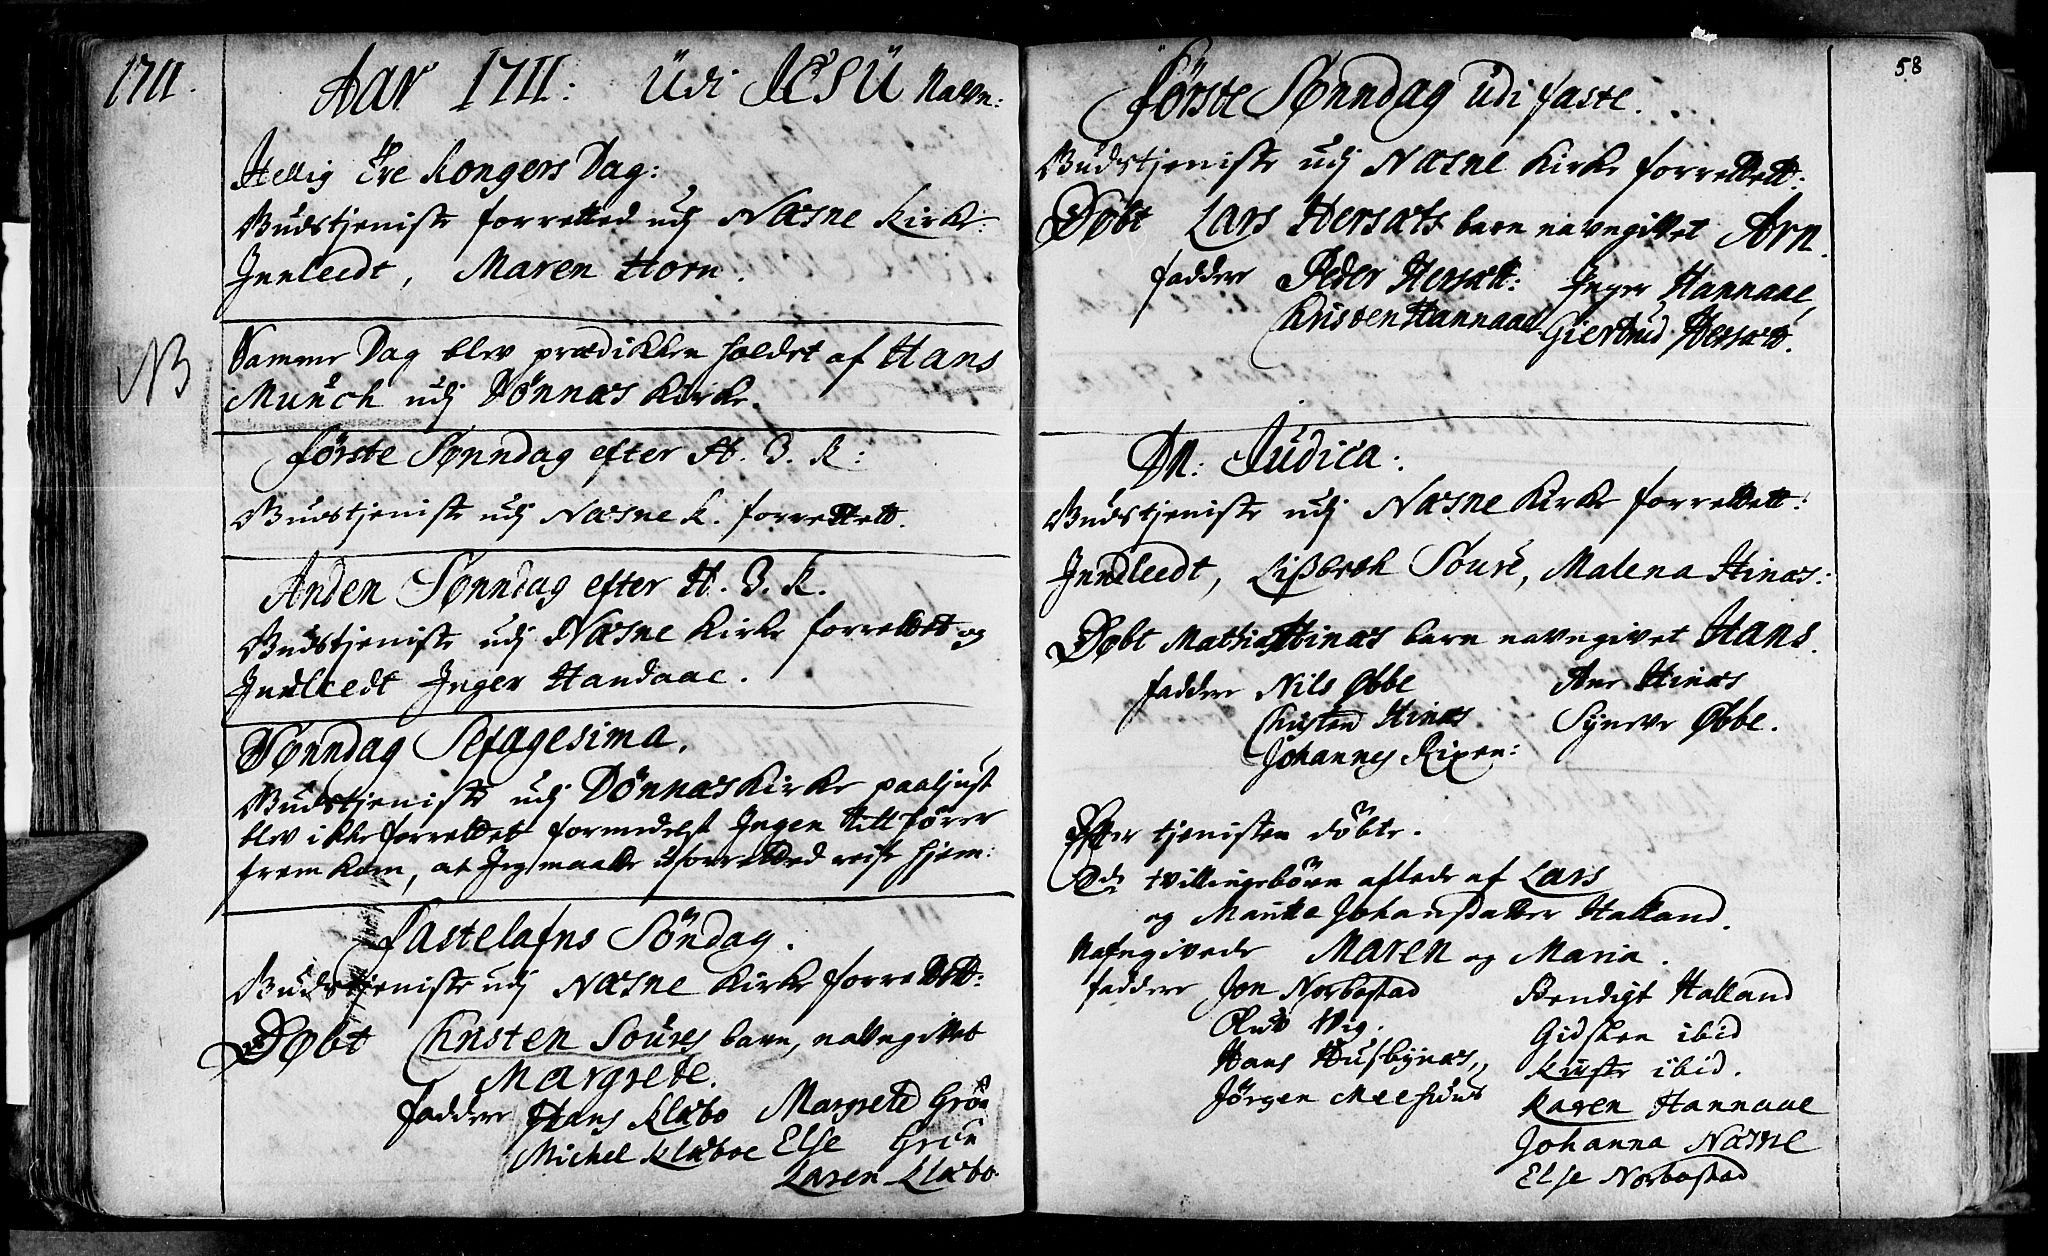 1711.
Aar 1711: Udi JESU Navn:
Hellig Tre Kongers Dag:
Gudstjeniste forretted udj Næsne Kirke:
Innleedt, Maren Horn.
NB
Samme Dag blev prædikken holdet af Hans
Munch udj Dönnæs Kirke.
Förste Sønndag efter H. 3. K:
Gudstjeniste udj Næsne K. forrettett.
Anden Sønndag efter H. 3. K.
Gudstjeniste udj Næsne Kirke forrettet og
Innleedt Inger Handaae.
Sønndag Sexagesima.
Gudstjeniste udj Dönnæs Kirke paaliust
blev ikke forrettet formedelst Ingen till hörer
frem kom, at Jeg maatte uforretted reise hjem:
Fastelafns Söndag.
Gudstjeniste udj Næsne Kirke forrettett:
Døbt Christen Soures barn, navngivet
Margrete.
faddere Hans Klæbo Margrete Grön
Michel Klæboe Else Grön
Karen Klæbo
58
Förste Sønndag udi faste.
Gudstjeniste udj Næsne Kirke forrettett:
Døbt Lars Hersæts barn navngivet Arn.
faddere Peder Hersætt: Inger Hannaae,
Christen Hannaae Giertrud Hersætt.
Dn: Judica:
Gudstjeniste udj Næsne Kirke forrettett:
Innleedt, Lisbeth Soure, Malena Hinæs:
Døbt Mathias Hinæs barn navngivet Hans.
faddere Nils Øbbe Ane Hinæs
Christen Hinæs Synove Øbbe.
Johannes Rixen:
Efter tjenisten döbte.
De tvillingebörn aflede af Lars
og Marite Johansdatter Halland.
Nafngivede Maren og Maria.
faddere Jon Norbostad Bendigt Halland
Oluv Vig. Gidsken ibid
Hans Husbynæs, Kirste ibid.
Jörgen Meehuus Karen Hannaae
Johanna Næsne
Else Norbostad